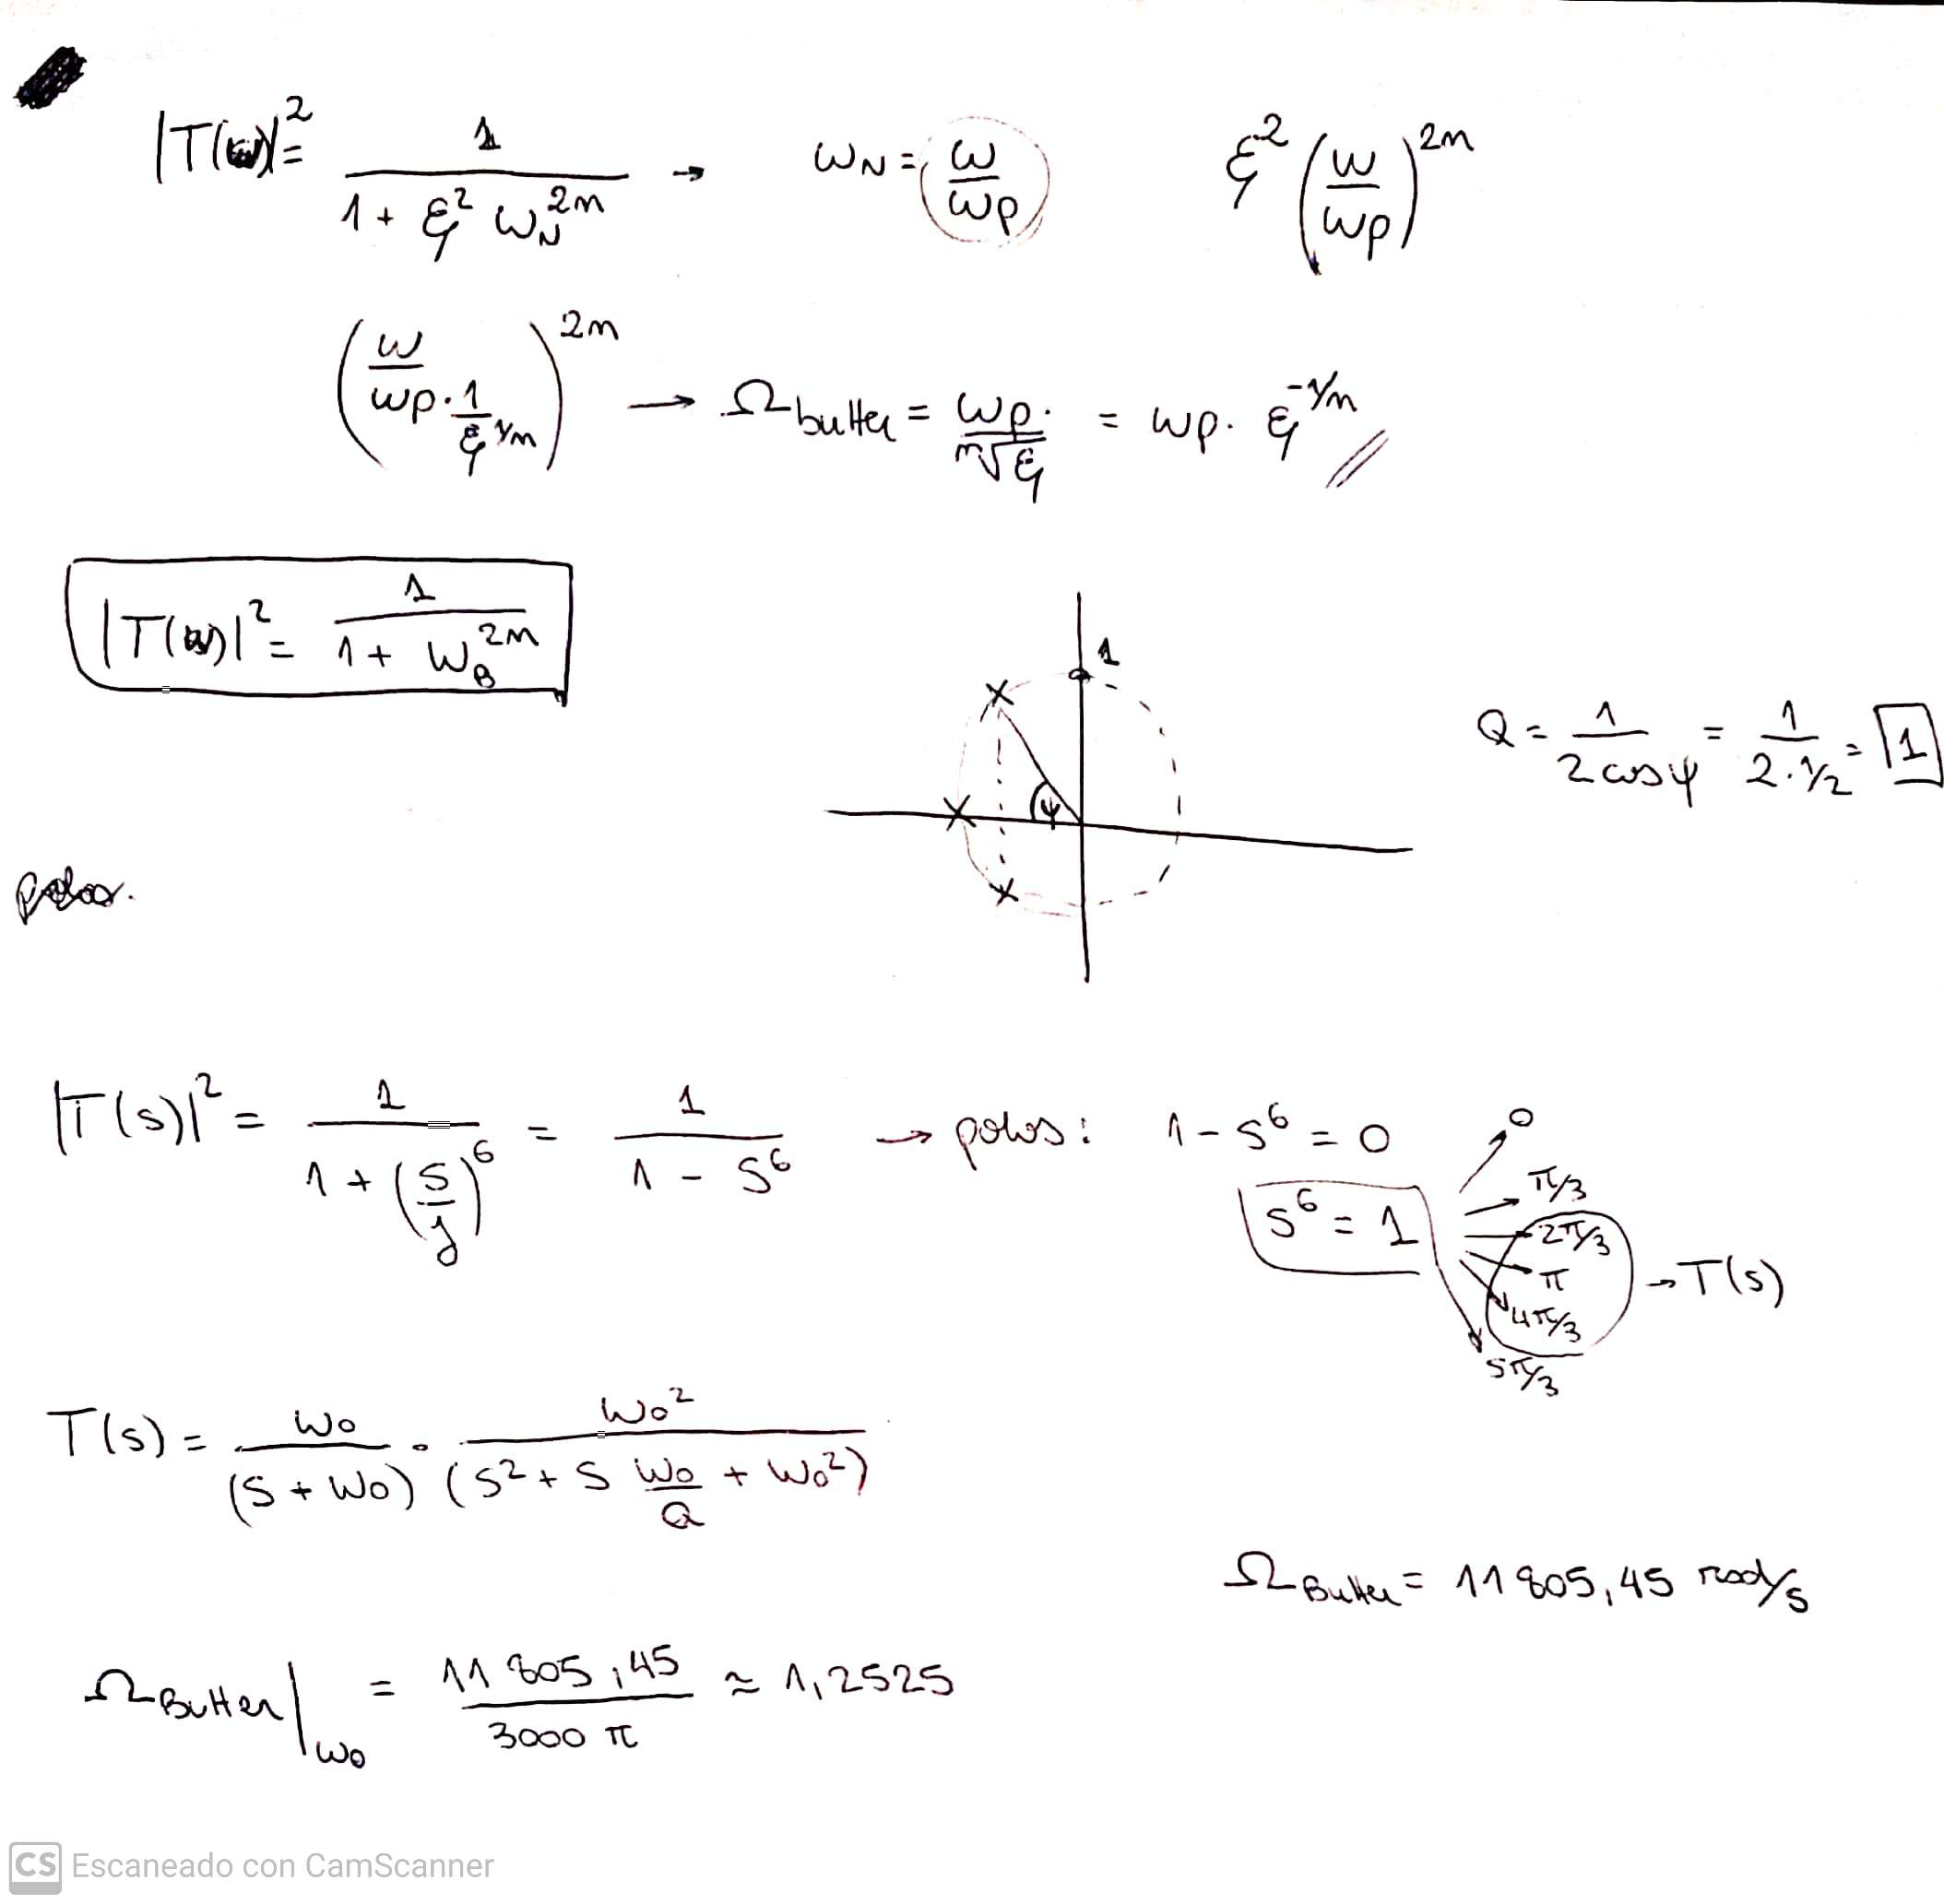 |T(ω)|² = 1 / (1 + ξ² ω_N^2n) → ω_N = ω / ωp   ξ² (ω / ωp)^2n
(ω / (ωp · 1 / ξ^1/n))^2n → Ω butter = ωp / ⁿ√ξ = ωp · ξ^-1/n //
|T(ω)|² = 1 / (1 + ω_B^2n)
1
Q = 1 / (2 cos ψ) = 1 / (2 · 1/2) = 1
ψ
polos.
|T(s)|² = 1 / (1 + (s / j)^6) = 1 / (1 - s^6) → polos: 1 - s^6 = 0
s^6 = 1
0
π/3
2π/3
π
4π/3
5π/3
→ T(s)
T(s) = ω₀ / (s + ω₀) · ω₀² / (s² + s ω₀ / Q + ω₀²)
Ω Butter = 11805,45 rad/s
Ω Butter |ω₀ = 11805,45 / 3000 π ≈ 1,2525
CS Escaneado con CamScanner